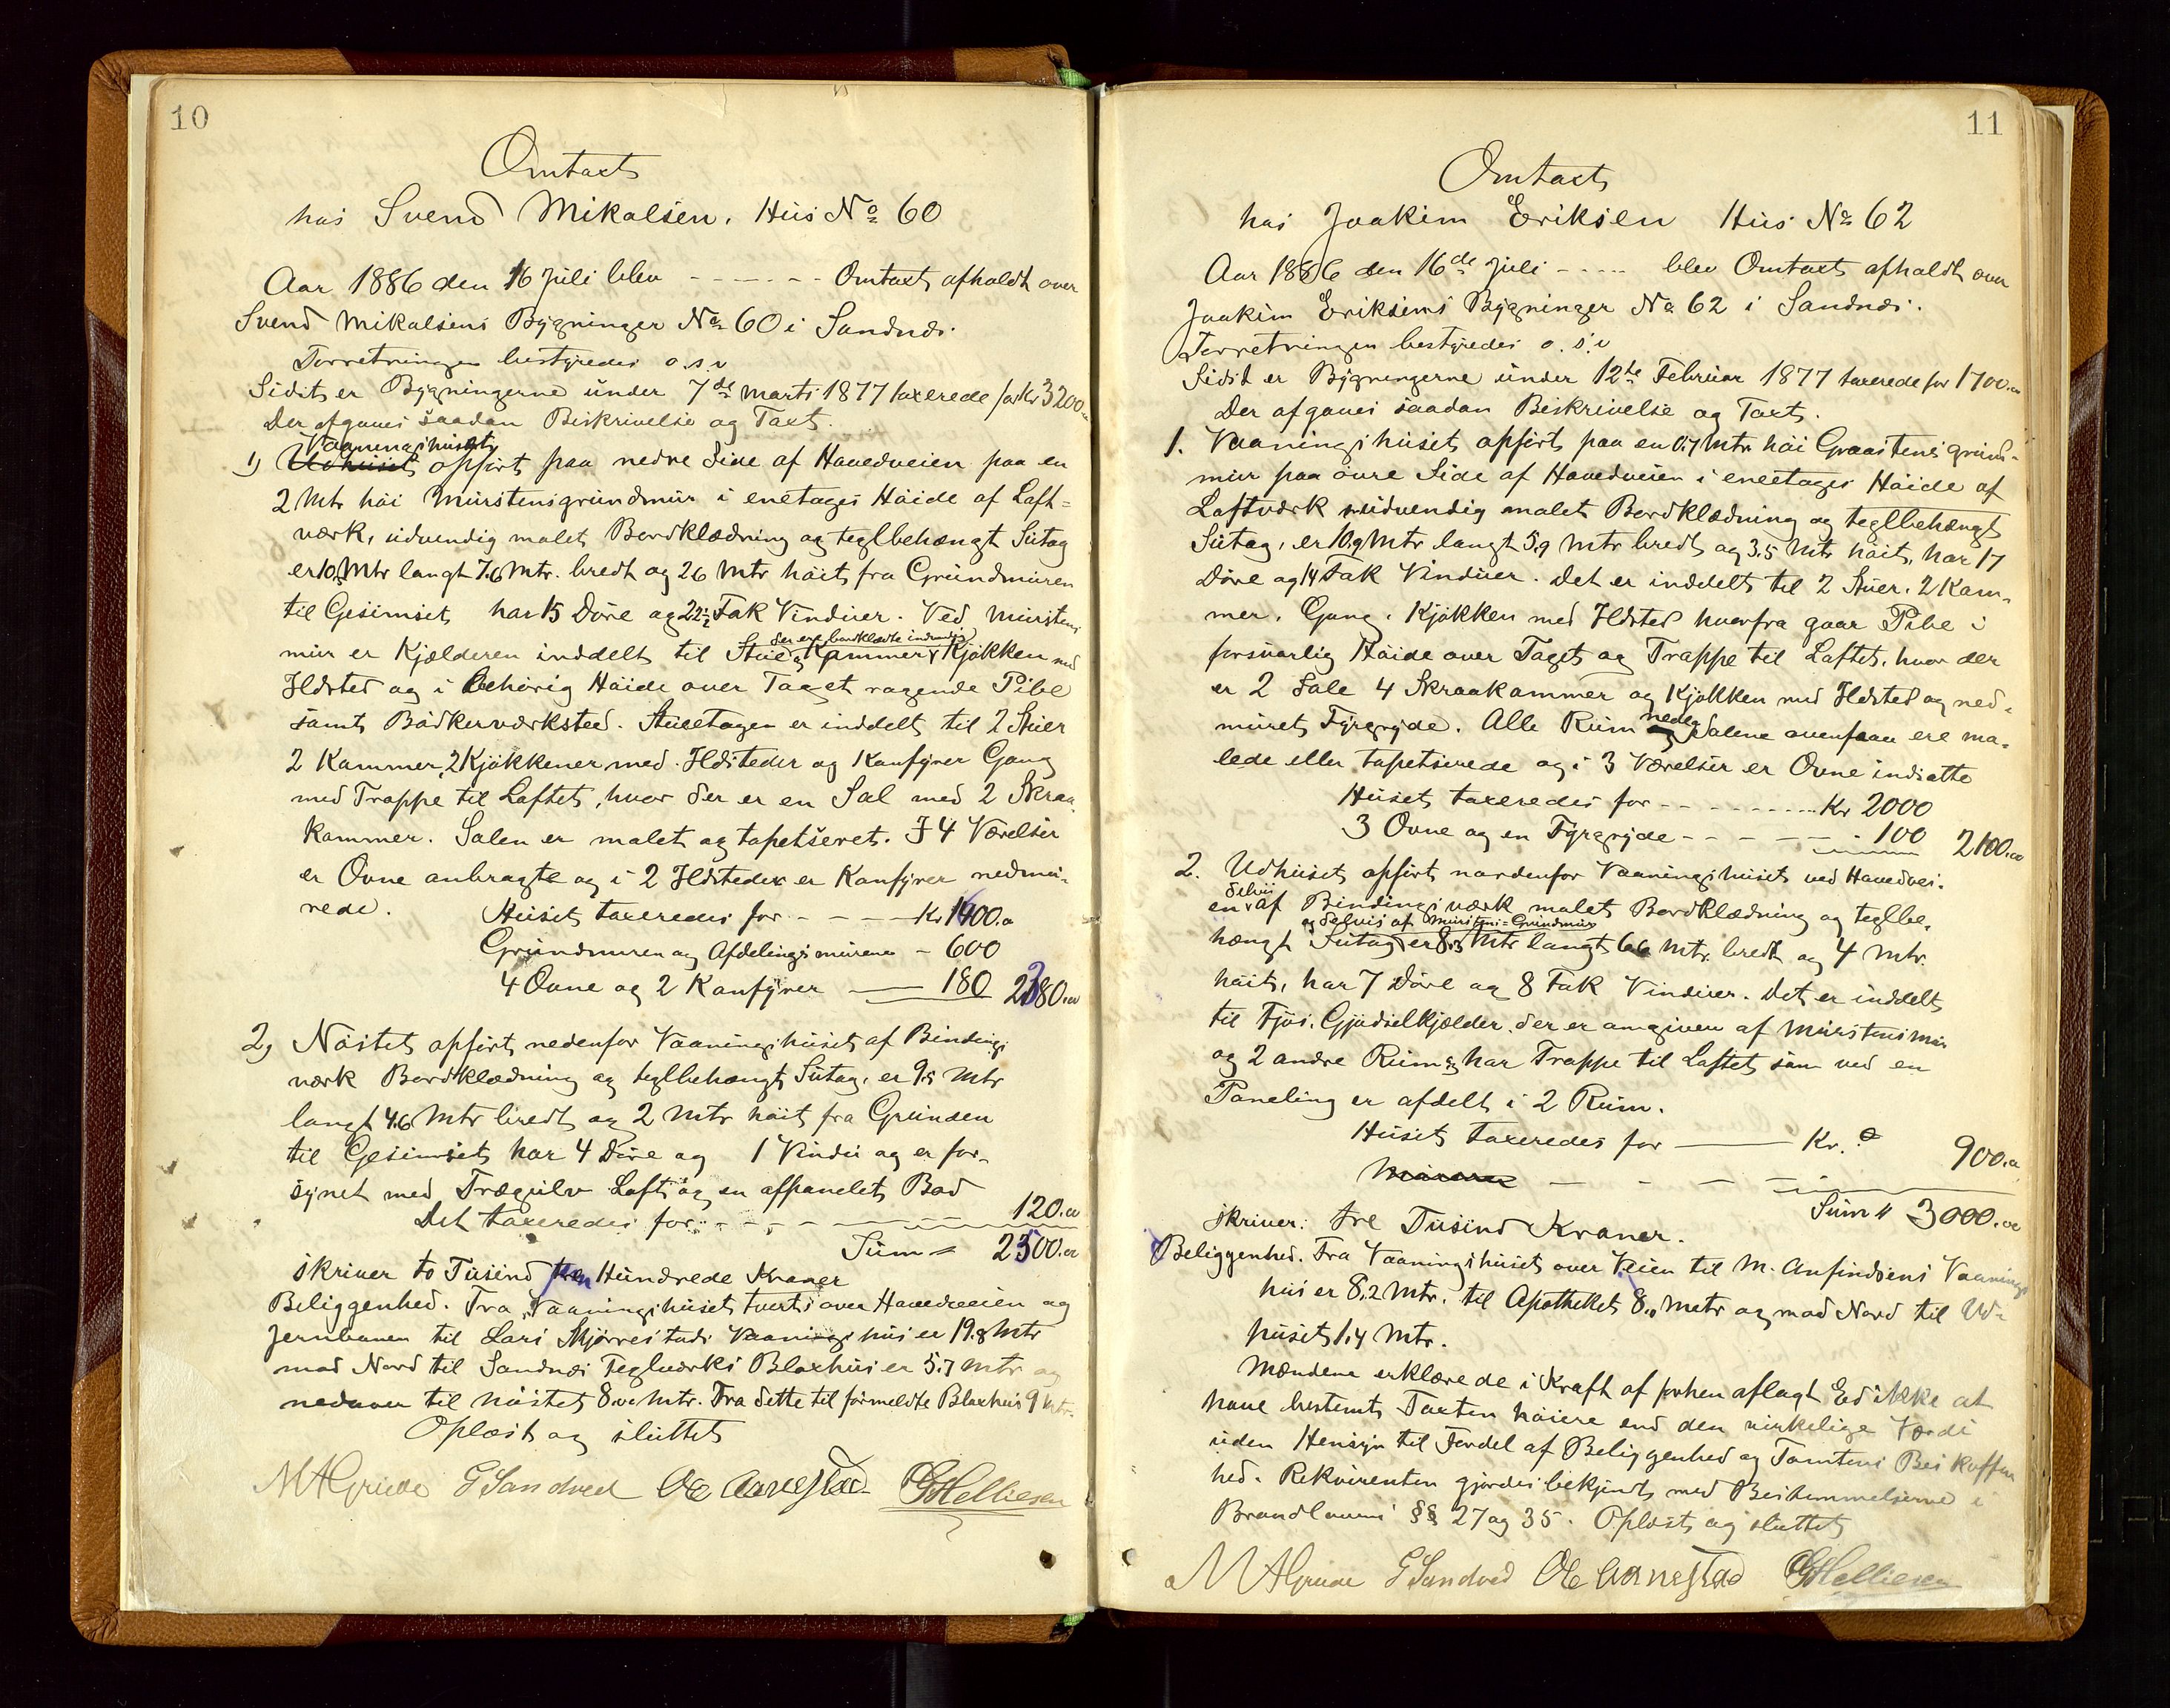 10
Omtaxt
hos Svend Mikalsen. Hus No 60
Aar 1886 den 16 Juli blev - - - - - - Omtaxt afholdt over
Svend Mikalsens Bygninger No 60 i Sandnæs.
Forretningen bestyredes o.s.v
Sidst er Bygningerne under 7de Marts 1877 taxerede for Kr 3200.00
Der afgaves saadan Beskrivelse og Taxt.
Vaaningshuset
1) Udhuset opført paa nedre Side af Hovedveien paa en
2 Mtr høi Murstensgrundmur i enetages Høide af Laft-
værk, udvendig malet Bordklædning og teglbehængt Sutag
er 10,5 Mtr langt 7.6 Mtr. bredt og 2.6 Mtr høit fra Grundmuren
til Gesimset har 15 Døre og 22½ Fak Vinduer. Ved Murstens
der ere bordklædte indvendig
mur er Kjælderen inddelt til Stue & Kammer & Kjøkken med
Ildsted og i behørig Høide over Taget ragende Pibe
samt Bødkerværksted. Stueetagen er inddelt til 2 Stuer
2 Kammer, 2 Kjøkkener med Ildsteder og Komfyrer Gang
med Trappe til Loftet, hvor der er en Sal med 2 Skraa
kammer. Salen er malet og tapetseret. I 4 Værelser
er Ovne anbragte og i 2 Ildsteder er Komfyrer nedmu-
rede. Huset taxeredes for - - - - Kr 1600.00
Grundmuren og Afdelingsmurene - 600
4 Ovne og 2 Komfyrer — 180 2380.00
2) Nøstet opført nedenfor Vaaningshuset af Bindings
værk Bordklædning og teglbehængt Sutag, er 9.5 Mtr
langt 4.6 Mtr bredt og 2 Mtr høit fra Grunden
til Gesimset har 4 Døre og 1 Vindu og er for-
synet med Trægulv Loft og en afpanelet Bod
Det taxeredes for - - - - 120.00
Sum = 2500.00
skriver to Tusind fem Hundrede Kroner
Beliggenhed. Fra Vaaningshuset tverts over Hovedveien og
Jernbanen til Lars Skjørrestads Vaaningshus er 19.8 Mtr
mod Nord til Sandnæs Teglværks Bloxhus er 5.7 Mtr og
nedover til Nøstet 8.0 Mtr. Fra dette til formeldte Bloxhus 9 Mtr.
Oplæst og sluttet
M A Grude G Sandved O E Aanestad G Helliesen
11
Omtaxt
hos Joakim Eriksen Hus No 62
Aar 1886 den 16de Juli - - - - - blev Omtaxt afholdt over
Joakim Eriksens Bygninger No 62 i Sandnæs.
Forretningen bestyredes o.s.v
Sidst er Bygningerne under 12te Februar 1877 taxerede for 1700.00
Der afgaves saadan Beskrivelse og Taxt.
1. Vaaningshuset opført paa en 0.7 Mtr høi Graastensgrund-
mur paa øvre Side af Hovedveien i eneetages Høide af
Laftværk udvendig malet Bordklædning og teglbehængt
Sutag, er 10.9 Mtr langt 5.9 Mtr bredt og 3.5 Mtr høit, har 17
Døre og 14 Fak Vinduer. Det er inddelt til 2 Stuer. 2 Kam-
mer. Gang. Kjøkken med Ildsted hvorfra gaar Pibe i
forsvarlig Høide over Taget og Trappe til Loftet, hvor der
er 2 Sale 4 Skraakammer og Kjøkken med Ildsted og ned-
muret Fyrgryde. Alle Rum nede og Salene ovenpaa ere ma-
lede eller tapetserede og i 3 Værelser er Ovne indsatte
Huset taxeredes for - - - - - - - - - Kr 2000
3 Ovne og en Fyrgryde - - - - - - 100 2100.00
2. Udhuset opført nordenfor Vaaningshuset ved Hovedvei-
delvis
en af Bindingsværk malet Bordklædning og teglbe-
og delvis af Murstens-Grundmur
hængt Sutag er 8.3 Mtr langt 6.6 Mtr. bredt og 4 Mtr.
høit, har 7 Døre og 8 Fak Vinduer. Det er inddelt
til Fjøs. Gjødselkjælder, der er omgiven af Murstensmur
og 2 andre Rum & har Trappe til Loftet som ved en
Paneling er afdelt i 2 Rum.
Huset taxeredes for — Kr. 900.00
Sum 3000.00
skriver: tre Tusind Kroner.
Beliggenhed. Fra Vaaningshuset over Veien til M. Anfindsens Vaanings
hus er 8.2 Mtr. til Apotheket 8.0 Metr og mod Nord til Ud-
huset 1.4 Mtr.
Mændene erklærede i Kraft af forhen aflagt Ed ikke at
have bestemt Taxten høiere end den virkelige Værdi
uden Hensyn til Fordel af Beliggenhed og Tomtens Beskaffen
hed. Rekvirenten gjordes bekjendt med Bestemmelserne i
Brandlovens §§ 27 og 35. Oplæst og sluttet
M A Grude G Sandved O E Aanestad G Helliesen